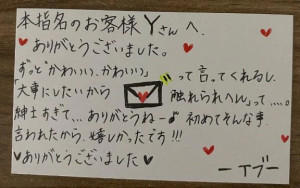 本指名のお客様Yさんへ.
♥ありがとうございました。♥
ずっと"かわいい、かわいい"って言ってくれるし、
「大事にしたいから 触れられへん」って.....。
紳士すぎて...ありがとうねー♪初めてそんな事
言われたから、嬉しかったです!!!
♥ありがとうございました♥
ーイブー